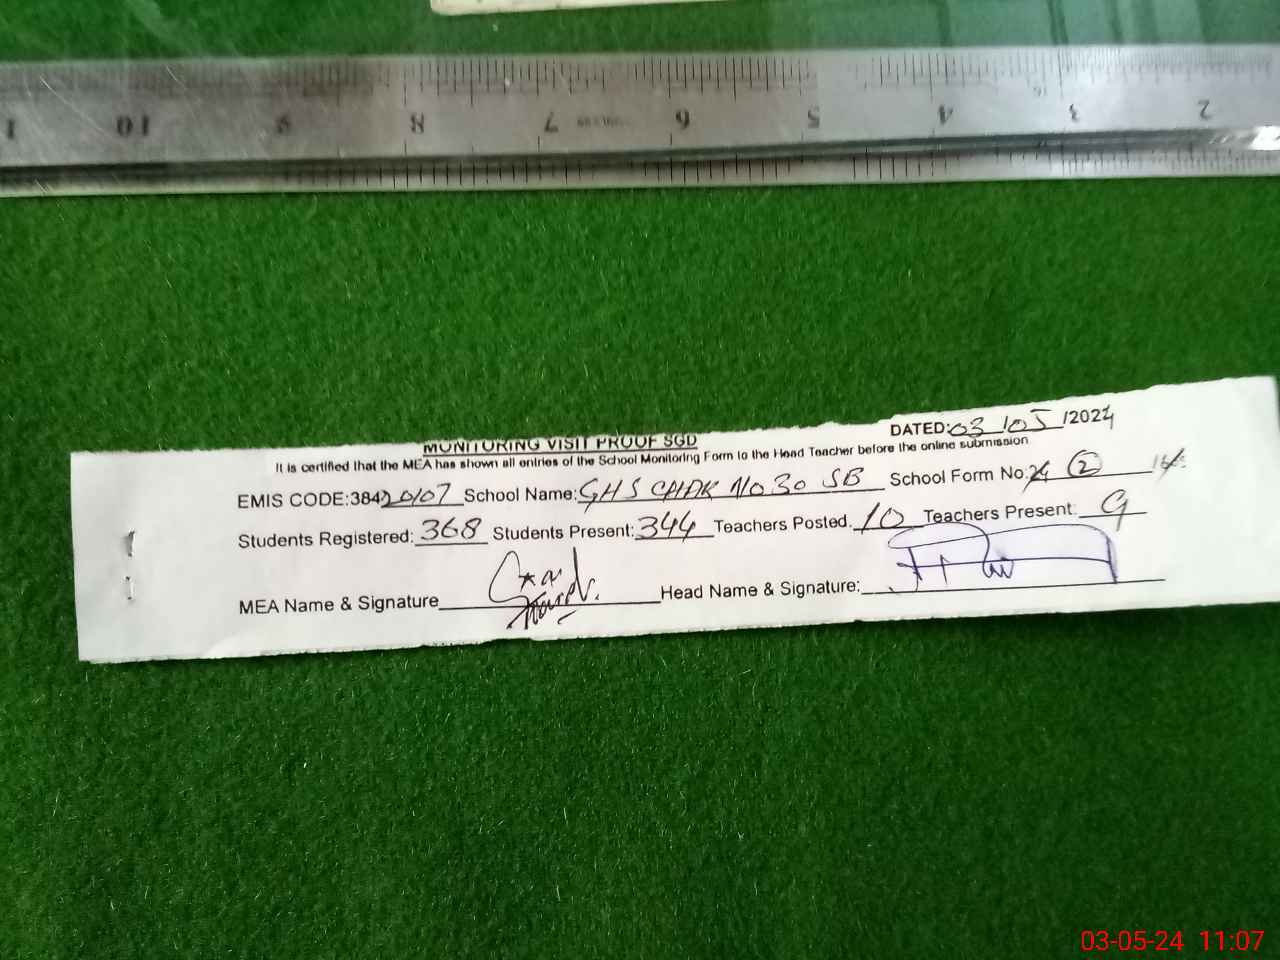 11 10 9 8 7 6 5 4 3 2
MONITORING VISIT PROOF SGD
DATED: 03/05/2024
It is certified that the MEA has shown all entries of the School Monitoring Form to the Head Teacher before the online submission
EMIS CODE:38420107 School Name: GHS CHAK NO 30 SB School Form No: 2
Students Registered: 368 Students Present: 344 Teachers Posted. 10 Teachers Present: 9
MEA Name & Signature Head Name & Signature:
03-05-24 11:07